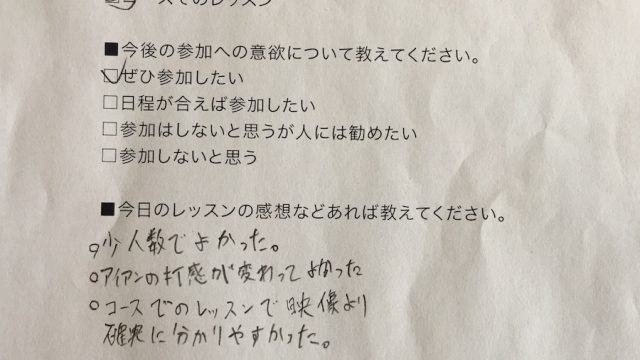 スでのレッスン
■今後の参加への意欲について教えてください。
□ぜひ参加したい
□日程が合えば参加したい
□参加はしないと思うが人には勧めたい
□参加しないと思う
■今日のレッスンの感想などあれば教えてください。
○少人数でよかった。
○アイアンの打感が変わってよかった
○コースでのレッスンで映像より
確実に分かりやすかった。